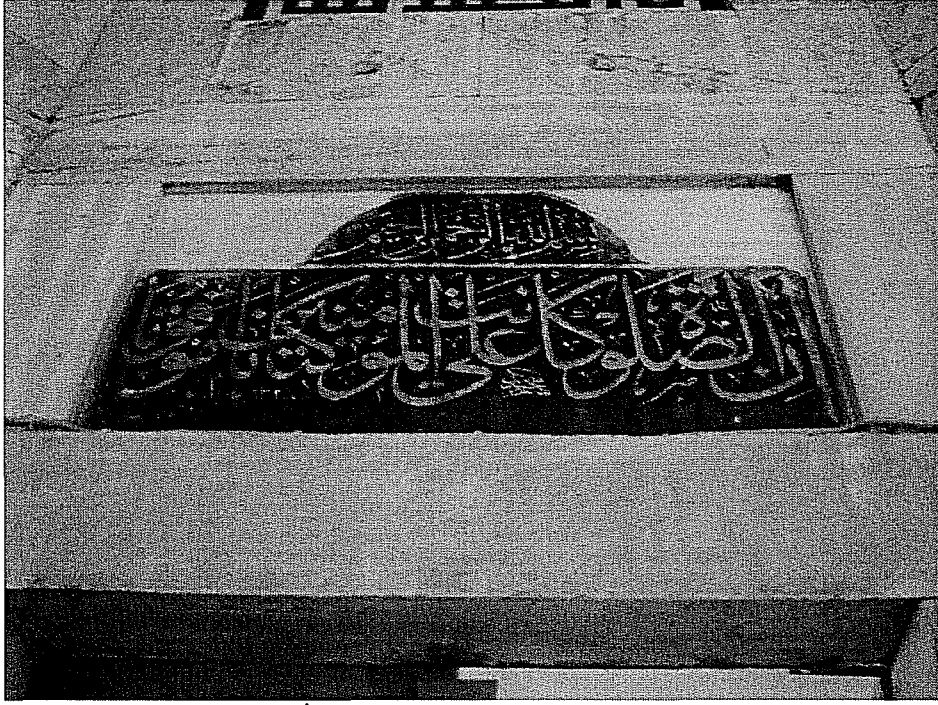 بسم الله الرحمن الرحيم
ان الصلوة كانت على المؤمنين كتابا موقوتا